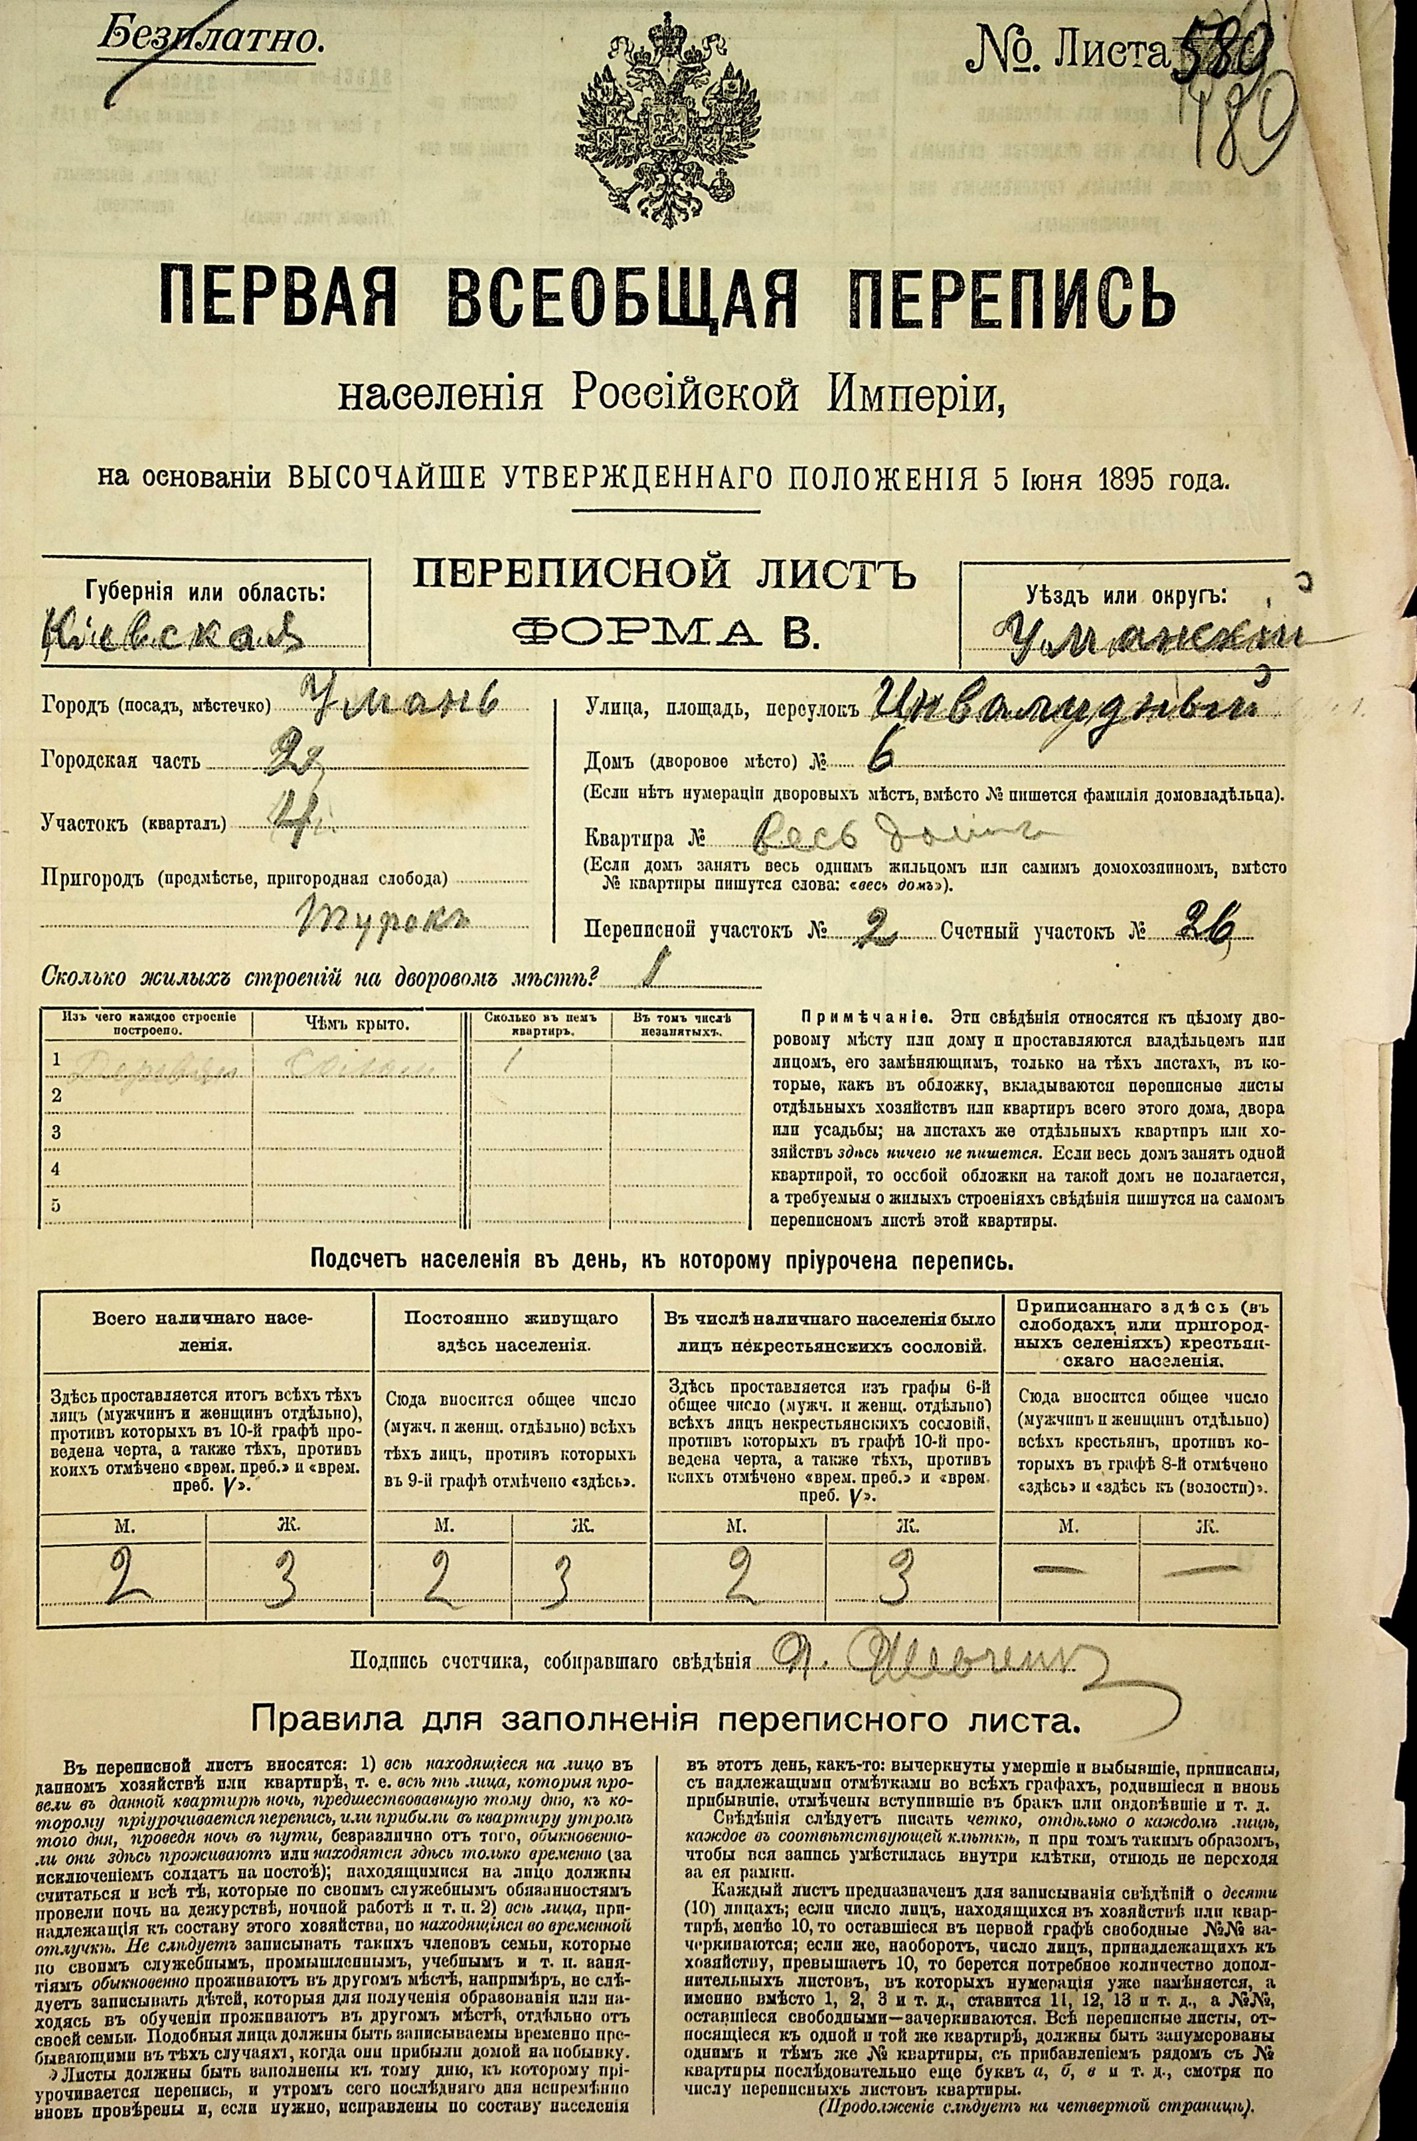 Безплатно.
№. Листа 580
189
ПЕРВАЯ ВСЕОБЩАЯ ПЕРЕПИСЬ
населенія Россійской Имперіи,
на основаніи ВЫСОЧАЙШЕ УТВЕРЖДЕННАГО ПОЛОЖЕНІЯ 5 Іюня 1895 года.
ПЕРЕПИСНОЙ ЛИСТЪ
ФОРМА В.
Губернія или область:
Кіевская
Уѣздъ или округъ:
Уманскій
Городъ (посадъ, мѣстечко) Умань
Городская часть 2я
Участокъ (кварталъ) 4
Пригородъ (предмѣстье, пригородная слобода)
Турокъ
Улица, площадь, переулокъ Инвалидный
Домъ (дворовое мѣсто) № 6
(Если нѣтъ нумераціи дворовыхъ мѣстъ, вмѣсто № пишется фамилія домовладѣльца).
Квартира № весь домъ
(Если домъ занятъ весь однимъ жильцомъ или самимъ домохозяиномъ, вмѣсто
№ квартиры пишутся слова: «весь домъ»).
Переписной участокъ № 2 Счетный участокъ № 26
Сколько жилыхъ строеній на дворовомъ мѣстѣ? 1
Изъ чего каждое строеніе
построено.
Чѣмъ крыто.
Сколько въ немъ
квартиръ.
Въ томъ числѣ
незанятыхъ.
1 1
2
3
4
5
Примѣчаніе. Эти свѣдѣнія относятся къ цѣлому дво-
ровому мѣсту или дому и проставляются владѣльцемъ или
лицомъ, его замѣняющимъ, только на тѣхъ листахъ, въ ко-
торые, какъ въ обложку, вкладываются переписные листы
отдѣльныхъ хозяйствъ или квартиръ всего этого дома, двора
или усадьбы; на листахъ же отдѣльныхъ квартиръ или хо-
зяйствъ здѣсь ничего не пишется. Если весь домъ занятъ одной
квартирой, то особой обложки на такой домъ не полагается,
а требуемыя о жилыхъ строеніяхъ свѣдѣнія пишутся на самомъ
переписномъ листѣ этой квартиры.
Подсчетъ населенія въ день, къ которому пріурочена перепись.
Всего наличнаго насе-
ленія.
Здѣсь проставляется итогъ всѣхъ тѣхъ
лицъ (мужчинъ и женщинъ отдѣльно),
противъ которыхъ въ 10-й графѣ про-
ведена черта, а также тѣхъ, противъ
коихъ отмѣчено «врем. преб.» и «врем.
преб. V».
Постоянно живущаго
здѣсь населенія.
Сюда вносится общее число
(мужч. и женщ. отдѣльно) всѣхъ
тѣхъ лицъ, противъ которыхъ
въ 9-й графѣ отмѣчено «здѣсь».
Въ числѣ наличнаго населенія было
лицъ некрестьянскихъ сословій.
Здѣсь проставляется изъ графы 6-й
общее число (мужч. и женщ. отдѣльно)
всѣхъ лицъ некрестьянскихъ сословій,
противъ которыхъ въ графѣ 10-й про-
ведена черта, а также тѣхъ, противъ
коихъ отмѣчено «врем. преб.» и «врем.
преб. V».
Приписаннаго здѣсь (въ
слободахъ или пригород-
ныхъ селеніяхъ) крестьян-
скаго населенія.
Сюда вносится общее число
(мужчинъ и женщинъ отдѣльно)
всѣхъ крестьянъ, противъ ко-
торыхъ въ графѣ 8-й отмѣчено
«здѣсь» и «здѣсь къ (волости)».
М. Ж. М. Ж. М. Ж. М. Ж.
2 3 2 3 2 3 — —
Подпись счетчика, собиравшаго свѣдѣнія
Правила для заполненія переписного листа.
Въ переписной листъ вносятся: 1) всѣ находящіеся на лицо въ
данномъ хозяйствѣ или квартирѣ, т. е. всѣ тѣ лица, которыя про-
вели въ данной квартирѣ ночь, предшествовавшую тому дню, къ ко-
торому пріурочивается перепись, или прибыли въ квартиру утромъ
того дня, проведя ночь въ пути, безразлично отъ того, обыкновенно-
ли они здѣсь проживаютъ или находятся здѣсь только временно (за
исключеніемъ солдатъ на постоѣ); находящимися на лицо должны
считаться и всѣ тѣ, которые по своимъ служебнымъ обязанностямъ
провели ночь на дежурствѣ, ночной работѣ и т. п. 2) всѣ лица, при-
надлежащія къ составу этого хозяйства, но находящіяся во временной
отлучкѣ. Не слѣдуетъ записывать такихъ членовъ семьи, которые
по своимъ служебнымъ, промышленнымъ, учебнымъ и т. п. заня-
тіямъ обыкновенно проживаютъ въ другомъ мѣстѣ, напримѣръ, не слѣ-
дуетъ записывать дѣтей, которыя для полученія образованія или на-
ходясь въ обученіи проживаютъ въ другомъ мѣстѣ, отдѣльно отъ
своей семьи. Подобныя лица должны быть записываемы временно пре-
бывающими въ тѣхъ случаяхъ, когда они прибыли домой на побывку.
Листы должны быть заполнены къ тому дню, къ которому прі-
урочивается перепись, и утромъ сего послѣдняго дня непремѣнно
вновь провѣрены и, если нужно, исправлены по составу населенія
въ этотъ день, какъ-то: вычеркнуты умершіе и выбывшіе, приписаны,
съ надлежащими отмѣтками во всѣхъ графахъ, родившіеся и вновь
прибывшіе, отмѣчены вступившіе въ бракъ или овдовѣвшіе и т. д.
Свѣдѣнія слѣдуетъ писать четко, отдѣльно о каждомъ лицѣ,
каждое въ соотвѣтствующей клѣткѣ, и при томъ такимъ образомъ,
чтобы вся запись умѣстилась внутри клѣтки, отнюдь не переходя
за ея рамки.
Каждый листъ предназначенъ для записыванія свѣдѣній о десяти
(10) лицахъ; если число лицъ, находящихся въ хозяйствѣ или квар-
тирѣ, менѣе 10, то оставшіеся въ первой графѣ свободные №№ за-
черкиваются; если же, наоборотъ, число лицъ, принадлежащихъ къ
хозяйству, превышаетъ 10, то берется потребное количество допол-
нительныхъ листовъ, въ которыхъ нумерація уже измѣняется, а
именно вмѣсто 1, 2, 3 и т. д., ставится 11, 12, 13 и т. д., а №№,
оставшіеся свободными—зачеркиваются. Всѣ переписные листы, от-
носящіеся къ одной и той же квартирѣ, должны быть занумерованы
однимъ и тѣмъ же № квартиры, съ прибавленіемъ рядомъ съ №
квартиры послѣдовательно еще буквъ а, б, в и т. д., смотря по
числу переписныхъ листовъ квартиры.
(Продолженіе слѣдуетъ на четвертой страницѣ).